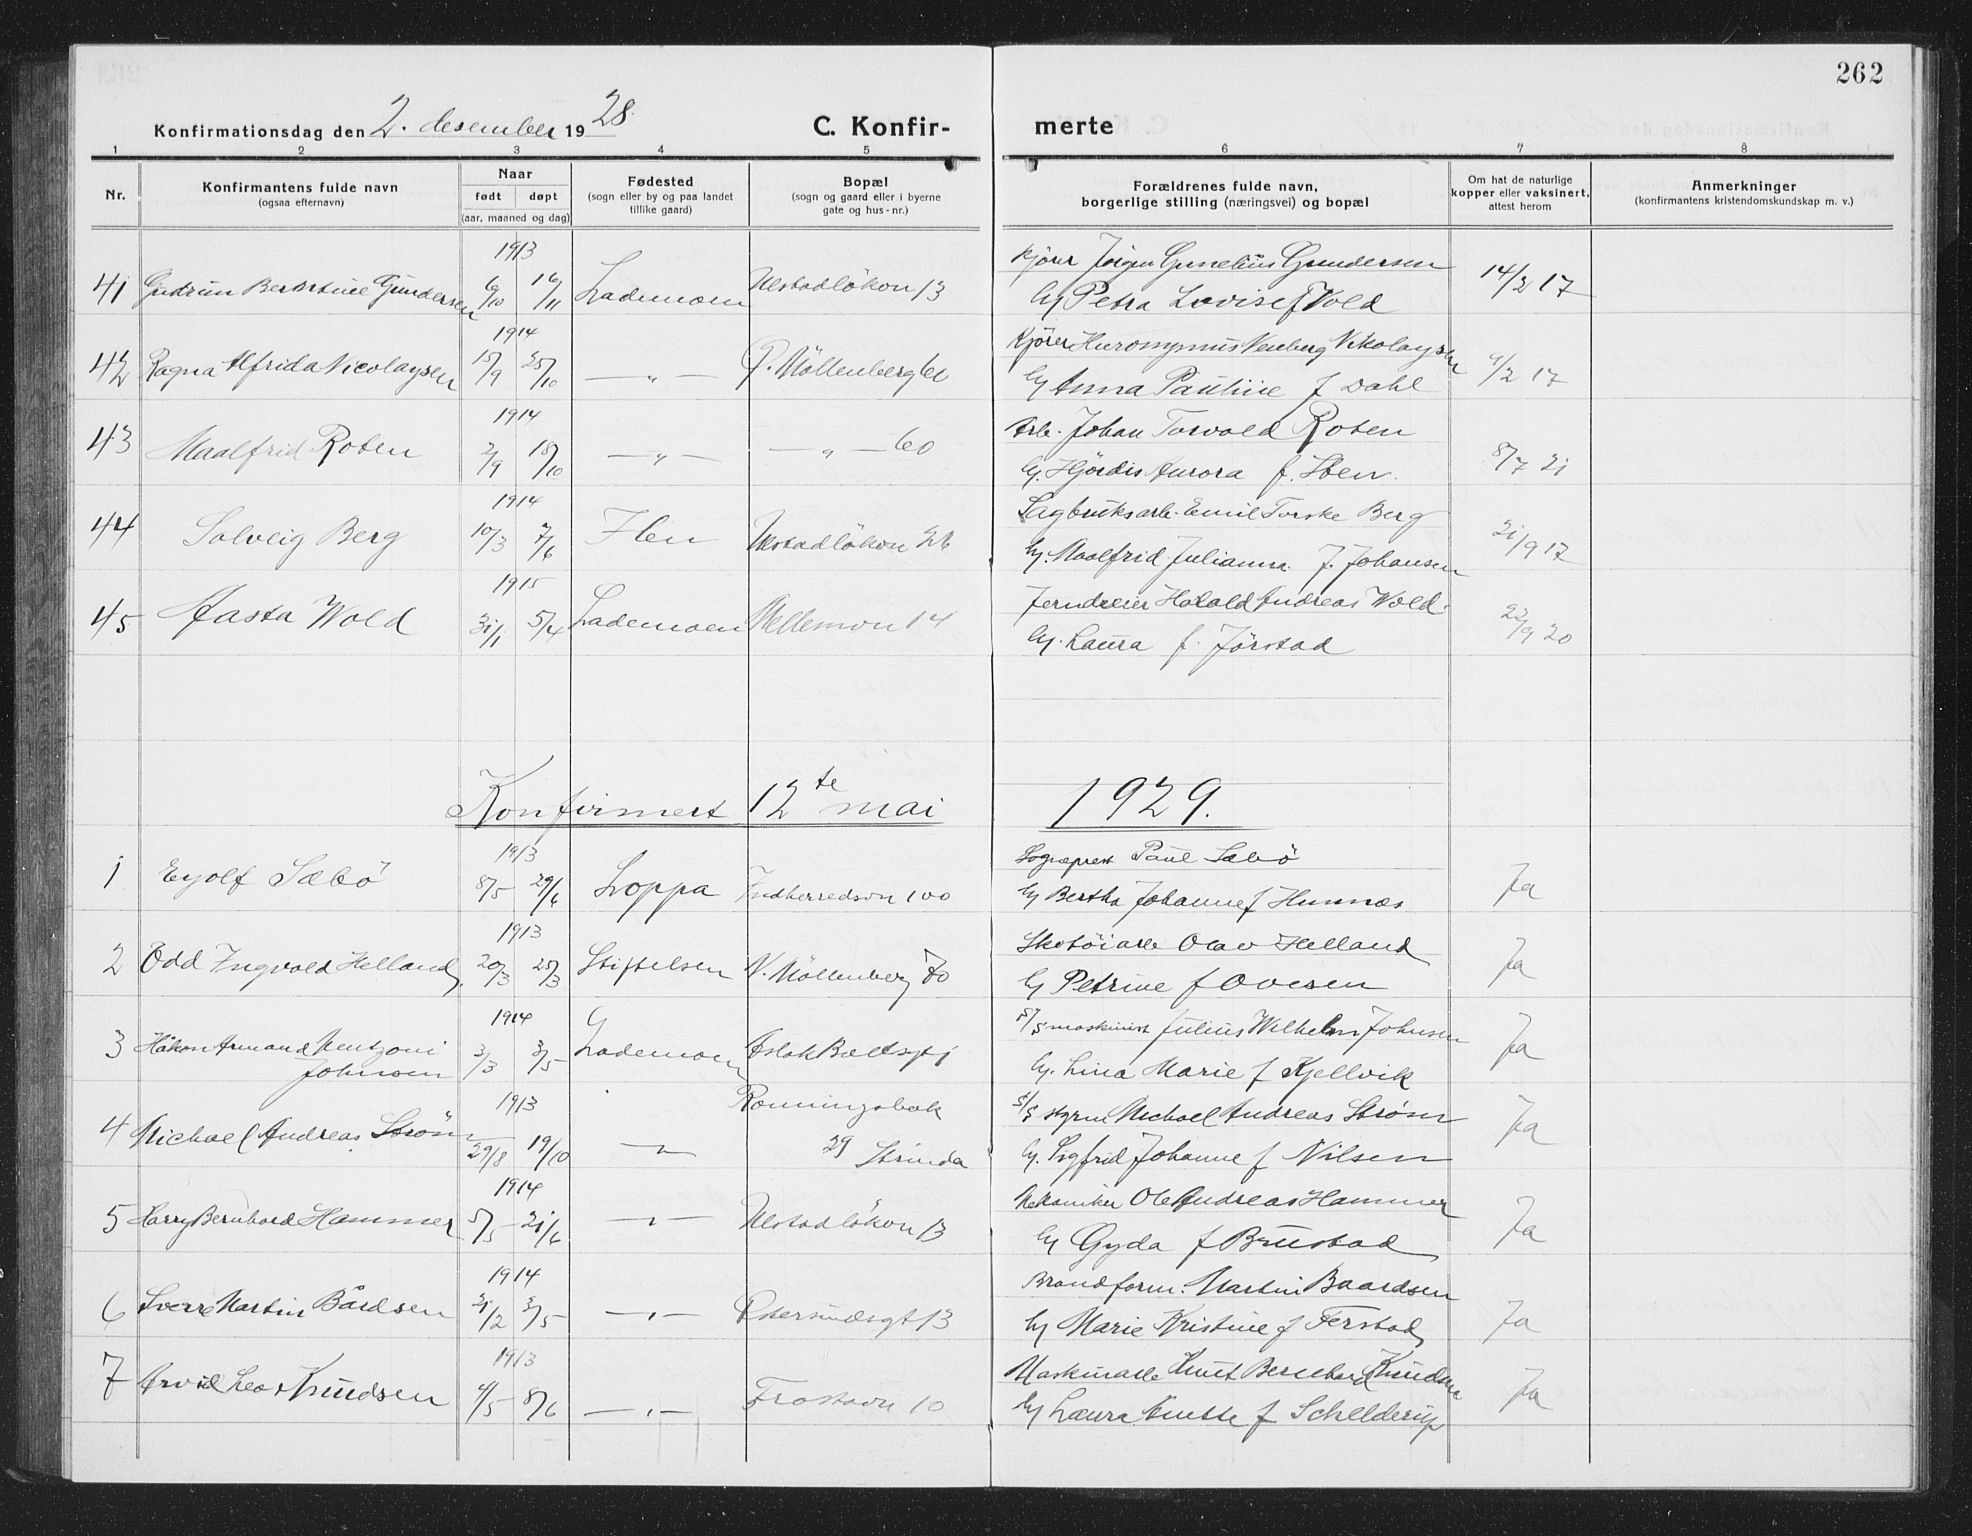 262
Konfirmationsdag den 2. desember 1928.
C. Konfirmerte
1 2 3 4 5 6 7 8
Nr.
Konfirmantens fulde navn
(ogsaa efternavn)
Naar
født døpt
(aar, maaned og dag)
Fødested
(sogn eller by og paa landet
tillike gaard)
Bopæl
(sogn og gaard eller i byerne
gate og hus-nr.)
Forældrenes fulde navn,
borgerlige stilling (næringsvei) og bopæl
Om hat de naturlige
kopper eller vaksinert,
attest herom
Anmerkninger
(konfirmantens kristendomskundskap m. v.)
1913
41 Gudrun Gundersen 6/10 16/11 Lademoen 13
Kjører Jörgen Gundersen 14/2 17
Petra Lovise f Wold
1914
42 Ragna Alfrida Nicolaysen 15/9 25/10 — „ — Møllenberg 60
Kjører Nikolaysen 17
Anna Pauline f Dahl
1914
43 Maalfrid Roten 2/9 18/10 — „ — — „ — 60
Arb. Johan Torvald Roten 8/7 21
Hjördis Aurora f. Iben.
1914
44 Solveig Berg 10/3 7/6 Ilen
Sagbruksarb. Emil Torske Berg 21/9 17
Maalfrid Julianna f. Johansen
1915
45 Aasta Wold 31/1 5/4 Lademoen Mellemvn 14
Jerndreier Harald Andreas Wold. 22/9 20
Laura f. Jörstad
Konfirmert 12te mai 1929.
1913
1 Eyolf Sæbö 8/5 29/6 Loppa Indherredsvn 100
Sogneprest Paul Sæbö Ja
Bertha Johanne f Hunnes
1913
2 Odd Ingvald Helland 20/3 25/3 Stiftelsen N. Möllenberg
Skotöiarb Olav Helland Ja
Petrine f Ovesen
1914
3 Håkon Armand Johnsen 3/3 3/5 Lademoen Aslak Boltsgt
S/S maskinist Julius Wilhelm Johnsen Ja
Lina Marie f Kjellvik
1913
4 Michael Andreas Ström 29/8 19/10 — „ — Rønningsbak
29 Strinda
S/S styrm Michael Andreas Strøm Ja
Sigfrid Johanne f Nilsen
1914
5 Harry Bernhard Hammer 5/5 21/6 — „ — 13
Mekaniker Ole Andreas Hammer Ja
Gyda f Brustad
1914
6 Sverre Martin Bårdsen 21/2 3/5 — „ — 13
Brandform. Martin Baardsen Ja
Marie Kristine f Ferstad
1913
7 Arvid Leo Knudsen 4/5 8/6 — „ — Frostavn 10
Maskinarb Knut Bernhard Knudsen Ja
Laura Anette f Schelderup